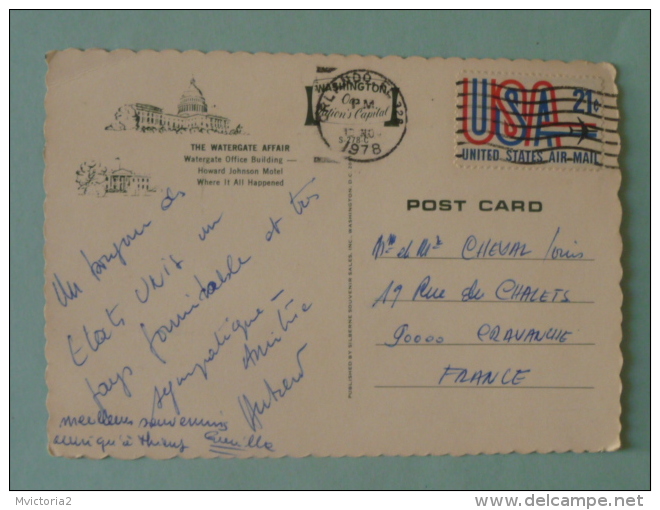 WASHINGTON
Our
Nation's Capital
ORLANDO, FL 328
PM
1978
USA 21c
UNITED STATES AIR MAIL
THE WATERGATE AFFAIR
Watergate Office Building —
Howard Johnson Motel
Where It All Happened
POST CARD
Un bonjour des
Etats Unis un
pays formidable et très
sympatique —
Amitié
Andrew
meilleurs souvenirs
ainsi qu'à Thierry Camille
Mr et Mme CHEVAL Louis
19 Rue des CHALETS
90000 CRAVANCHE
FRANCE
PUBLISHED BY SILBERNE SOUVENIR SALES, INC. WASHINGTON, D.C.
Mvictoria2
delcampe.net